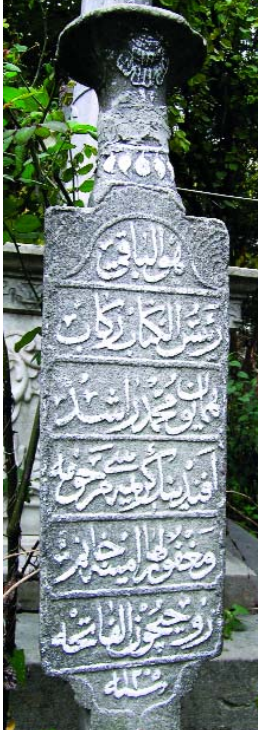 هو الباقی
رئیس الکتاب رکاب
همایون محمد راشد
افندینك کریمه سی مرحومه
ومغفور لها امینه خانم
روحیچون الفاتحه
سنه